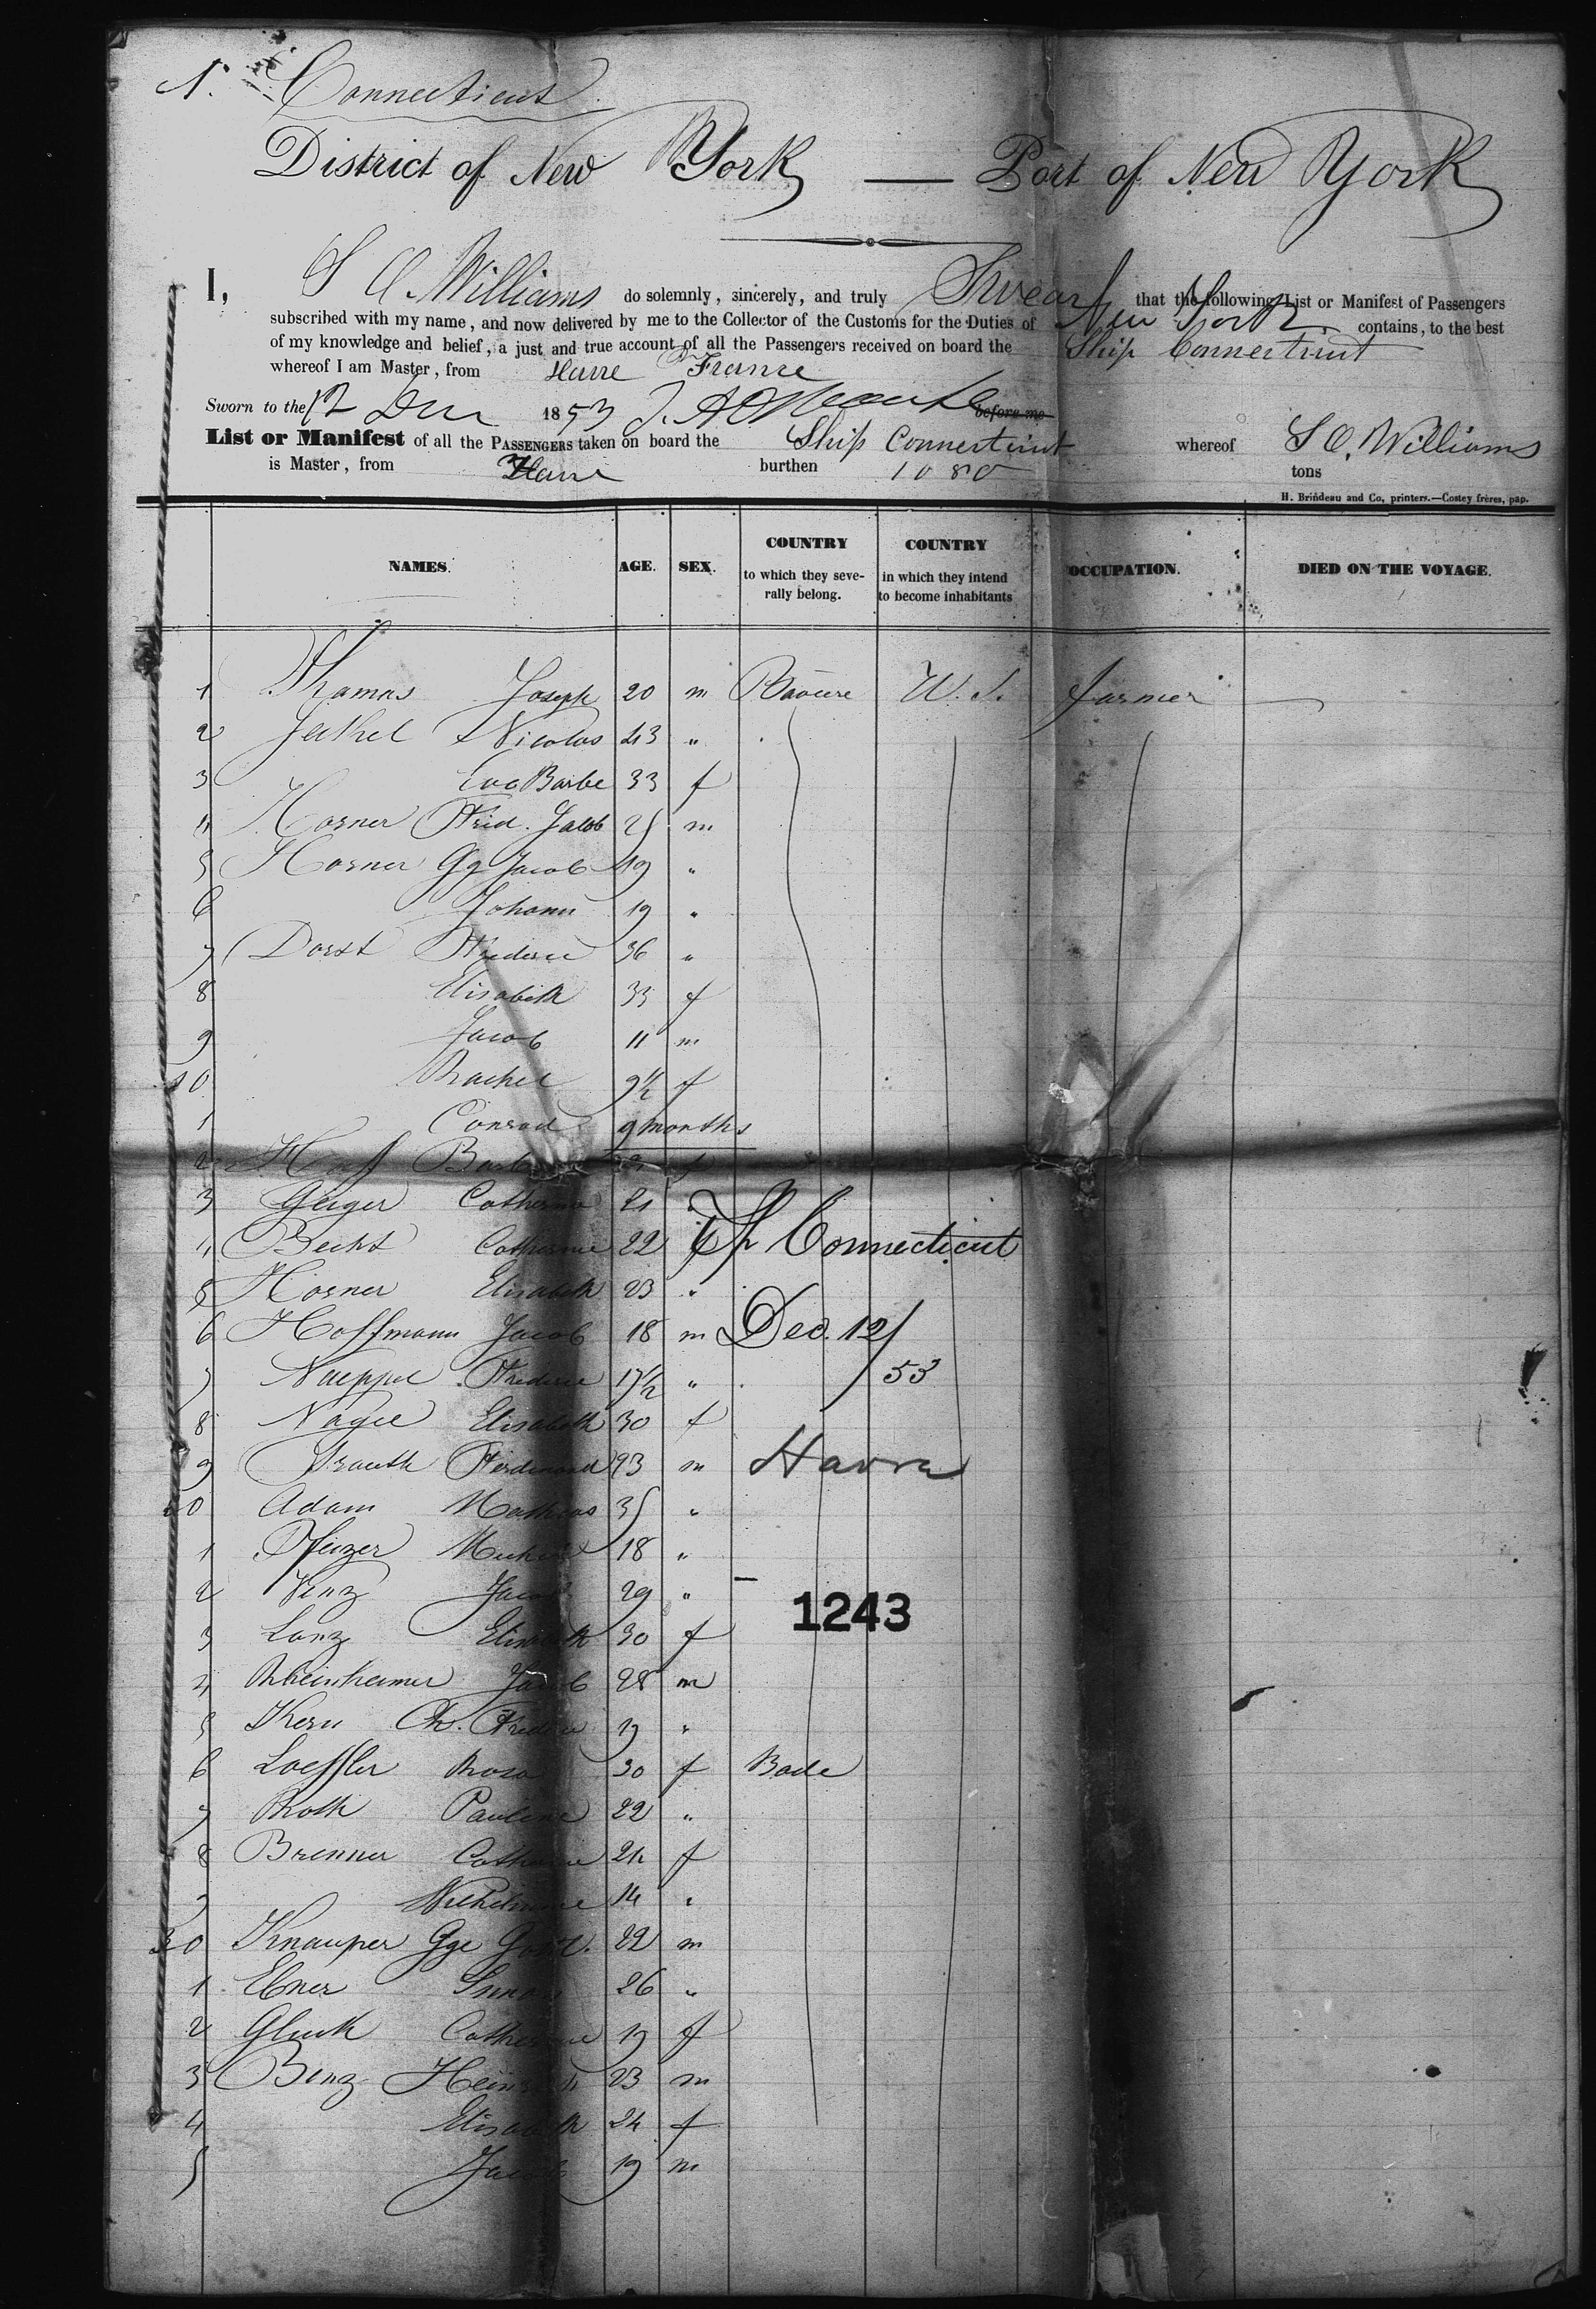 1. Connecticut
District of New York — Port of New York
I, S C. Williams do solemnly, sincerely, and truly Swear that the following List or Manifest of Passengers
subscribed with my name, and now delivered by me to the Collector of the Customs for the Duties of New York contains, to the best
of my knowledge and belief, a just and true account of all the Passengers received on board the Ship Connecticut
whereof I am Master, from Havre France
Sworn to the 12 Dec 1853 before me
List or Manifest of all the PASSENGERS taken on board the Ship Connecticut whereof S C. Williams
is Master, from Havre burthen 1080 tons
H. Brindeau and Co, printers.—Costey frères, pap.
NAMES. AGE. SEX. COUNTRY to which they severally belong. COUNTRY in which they intend to become inhabitants OCCUPATION. DIED ON THE VOYAGE.
1 Thomas Joseph 20 m Baviere U. S. farmer —
2 Nicolas 43 "
3 Eva Barbe 33 f
4 Horner Frid. Jacob 25 m
5 Horner Gg Jacob 19 "
6 Johann 19 "
7 Dorst Frederic 36 "
8 Elisabeth 33 f
9 Jacob 11 m
10 Rachel 9½ f
1 Conrad 9 months
2 f
3 Geiger Catherine 21 "
4 Becht Catherine 22
Sh Connecticut
5 Horner Elisabeth 23 "
6 Hoffmann Jacob 18 m
Dec. 12/53
7 Naeppel Frederic 17½ "
8 Nagel Elisabeth 30 f
9 Ferdinand 23 m
Havre
20 Adam Mathias 35 "
1 Pfeizer Michel 18 "
2 Jacob 29 "
1243
3 Lanz Elisabeth 30 f
4 Rheinheimer Jacob 28 m
5 Kern Ch. Frederic 19 "
6 Loeffler Rosa 30 f Bade
7 Roth Pauline 22 "
8 Brenner Catherine 24 f
9 Wilhelmine 14 "
30 Knauper Gge 22 m
1 Ebner Simon 26 "
2 Gluck Catherine 19 f
3 Benz Heinrich 23 m
4 Elisabeth 24 f
5 Jacob 19 m